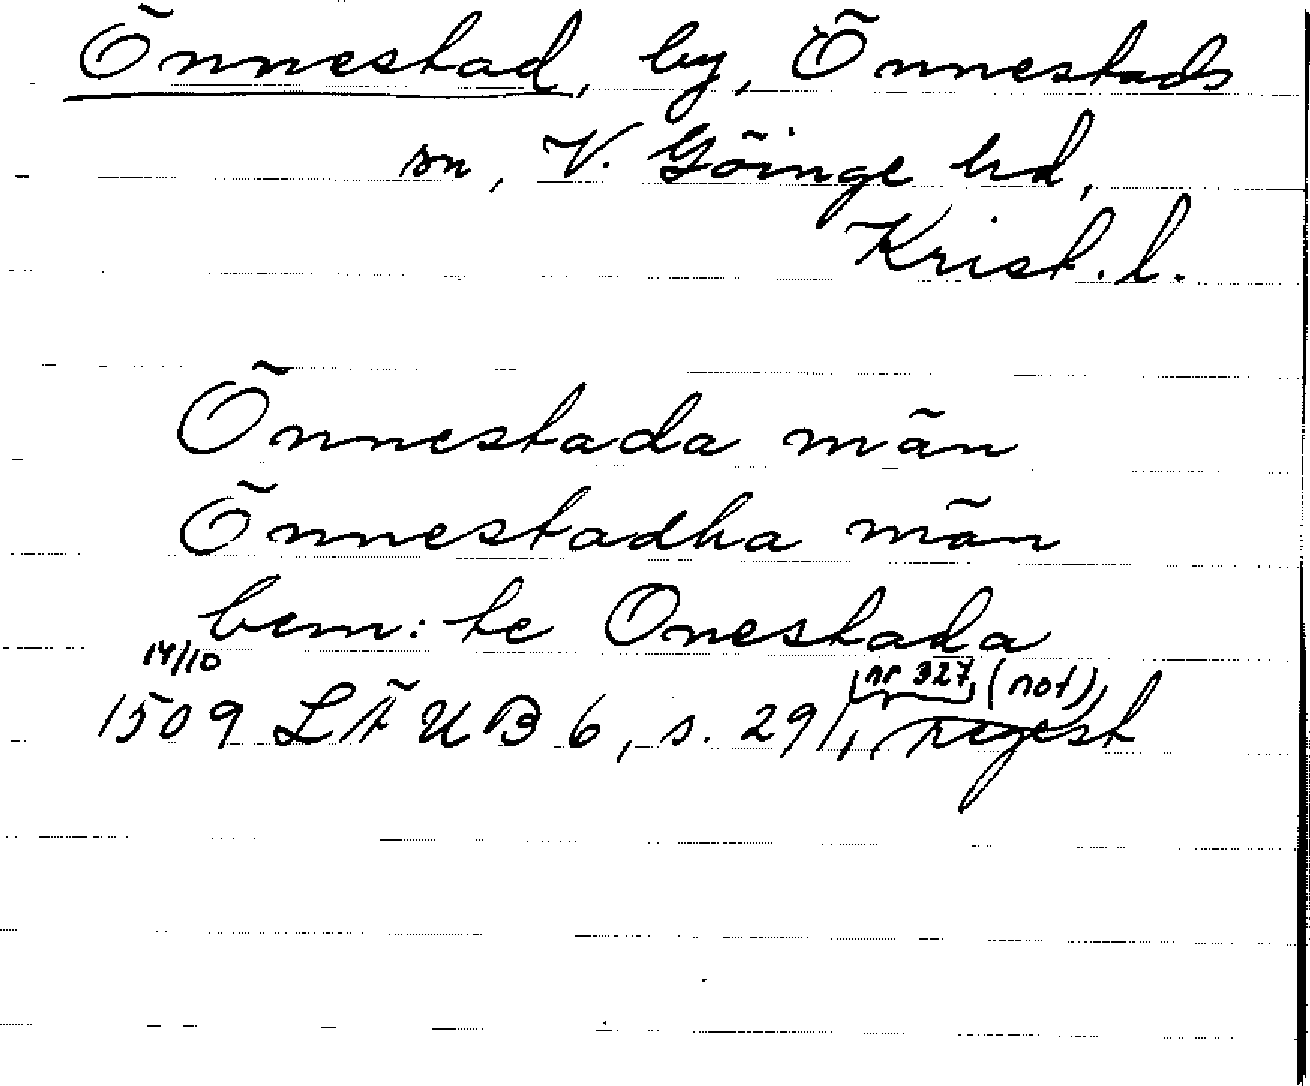 Önnestad, by, Önnestads
sn, V. Göinge hd,
Krist. l.
Önnestada män
Önnestadha män
bem: te Onestada
14/10 nr 327, (not),
1509 LÄUB 6, s. 291, regest